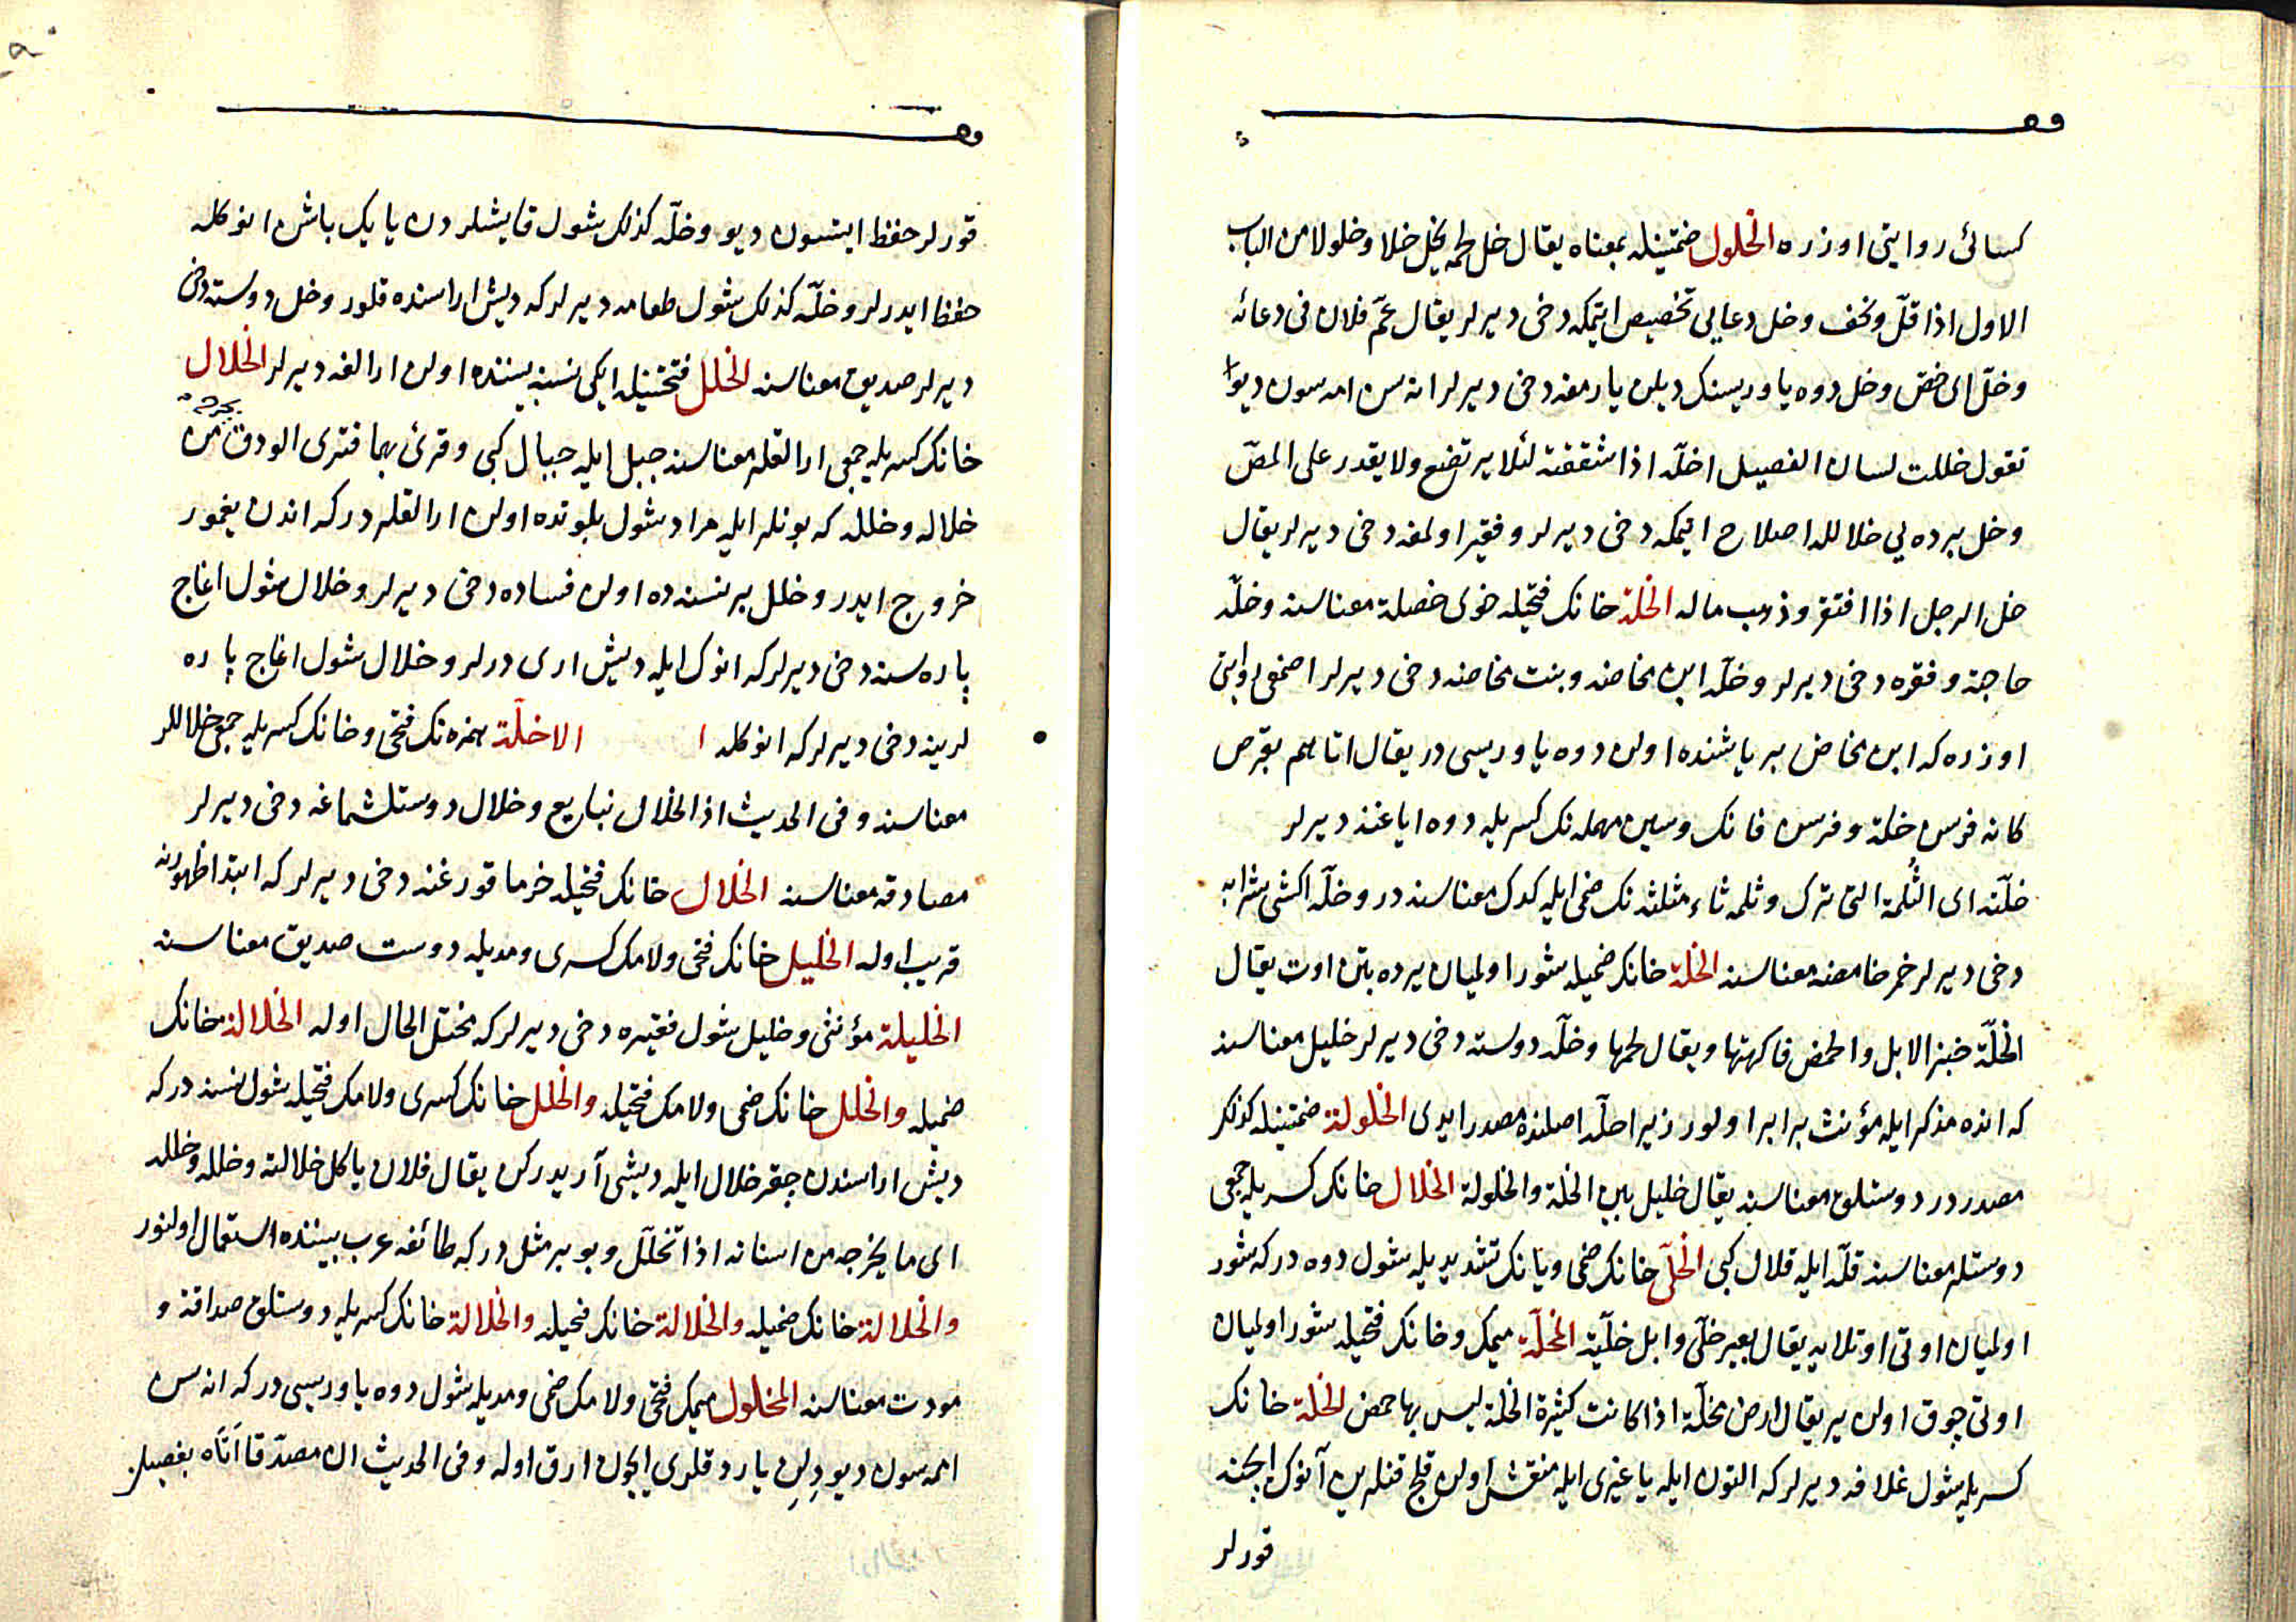 كسائى روايتى اوزره الخلول ضمتينله بمعناه يقال خل لحمه يخل خلا وخلولا من الباب
الاول اذا قلّ ونحف وخل دعايى تخصيص ايتمكه دخى ديرلر يقال عمّ فلان فى دعائه
وخلّ اى خصّ وخل دوه ياوريسنك ديلن يارمغه دخى ديرلر اناسن امه سون ديو
تقول خللت لسان الفصيل اخلّه اذا شققته لئلا يرتضع ولا يقدر على المصّ
وخل برده يى خلاللہ اصلاح ايتمكه دخى ديرلر وفقير اولمغه دخى ديرلر يقال
خل الرجل اذا افتقر وذهب ماله الخلة خانك فتحيله خوى خصلة معناسنه وخلّه
حاجة وفقره دخى ديرلر وخلّه ابن مخاضه وبنت مخاضه دخى ديرلر اصمعى روايتى
اوزره كه ابن مخاض بر ياشنده اولن دوه ياوريسى در يقال اتاهم بقرص
كانه فرسن خلة وفرسن فانك وسين مهمله نك كسريله دوه اياغنه ديرلر
خلّته اى الثُلمة التى ترك وثلمه ثاء مثلثه نك ضمى ايله كدك معناسنه در وخلّه اكشى شرابه
دخى ديرلر خمر خامضه معناسنه الخلة خانك ضميله شور اولميان يرده بتن اوت يقال
الخلّة خبز الابل والحمض فاكهتها ويقال لحمها وخلّه دوسته دخى ديرلر خليل معناسنه
كه انده مذكر ايله مؤنث برابر اولور زيرا خلّه اصلنده مصدر ايدى الخلولة ضمتينله كذلك
مصدر در دوستلوق معناسنه يقال خليل بين الخلة والخلولة الخلال خانك كسريله جمعى
دوستلر معناسنه قلّه ايله قلال كبى الخلّى خانك ضمى ويانك تشديديله شول دوه در كه شور
اولميان اوتى اوتلايه يقال بعير خلّى وابل خلّية المخلّة ميمك وخانك فتحيله شور اولميان
اوتى چوق اولن ير يقال ارض مخلّة اذا كانت كثيرة الخلة ليس بها حمض الخلة خانك
كسريله شول غلافه ديرلر كه التون ايله يا غيرى ايله منقش اولن قلج قنلرين آنوك ايچنه
قورلر
قورلر حفظ ايتسون ديو وخلّه كذلك شول قايشلردن يايك باشن انوكله
حفظ ايدرلر وخلّه كذلك شول طعامه ديرلر كه ديش اراسنده قلور وخل دوسته دخى
ديرلر صديق معناسنه الخلل فتحتينله ايكى نسنه بيننده اولن ارالغه ديرلر الخلال
خانك كسريله جمعى ارالقلر معناسنه جبل ايله جبال كبى وقرئ بهما فترى الودق يخرج من
خلاله وخلله كه بونلر ايله مراد شول بلوتده اولن ارالقلر در كه اندن يغمور
خروج ايدر وخلل بر نسنه ده اولن فساده دخى ديرلر وخلال شول اغاج
پاره سنه دخى ديرلر كه انوك ايله ديش ارى درلر وخلال شول اغاج پاره
لرينه دخى ديرلر كه انوكله ا الاخلّة همزه نك فتحى وخانك كسريله جمعى خلاللر
معناسنه وفى الحديث اذا الخلال نبايع وخلال دوستلشماغه دخى ديرلر
مصادقه معناسنه الخلال خانك فتحيله خرما قورغنه دخى ديرلر كه ابتدا ظهورنه
قريب اوله الخليل خانك فتحى ولامك كسرى ومديله دوست صديق معناسنه
الخليلة مؤنثى وخليل شول فقيره دخى ديرلر كه مختل الحال اوله الخلالة خانك
ضميله والخلل خانك ضمى ولامك فتحيله والخلل خانك كسرى ولامك فتحيله شول نسنه در كه
ديش اراسندن چقر خلال ايله ديشى آريدركن يقال فلان ياكل خلالته وخلله وخلله
اى ما يخرجه من اسنانه اذا تخلّل وبو بر مثل در كه طائفه عرب بيننده استعمال اولنور
والخلالة خانك ضميله والخلالة خانك فتحيله والخلالة خانك كسريله دوستلق صداقة و
مودت معناسنه المخلول ميمك فتحى ولامك ضمى ومديله شول دوه ياوريسى در كه اناسن
اممه سون ديو دِلِن ياردقلرى ايچون ارق اوله وفى الحديث ان مصدّقا اتاه بفصيل